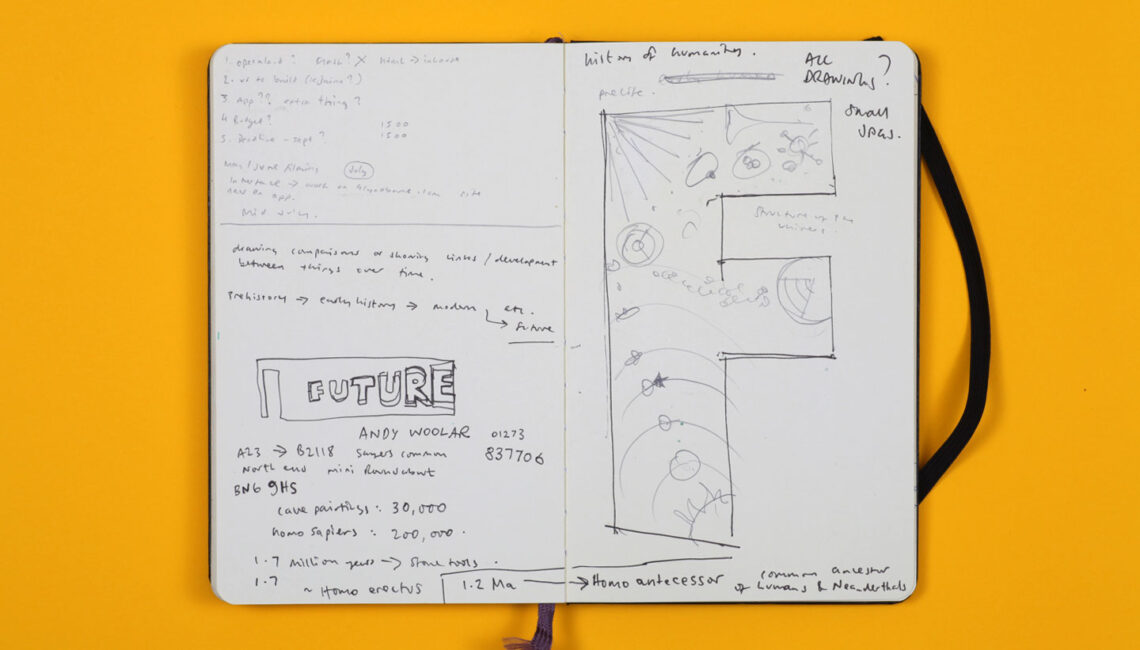 1. operabout? Flash? X html → inhouse
2. us to build (redesign?)
3. App?? extra thing?
4 Budget? 1500
5. Deadline - Sept? 1500
May/June filming July
Interface → work on Glyndebourne.com site
need on app.
Mid
drawing comparisons or showing links / development
between things over time.
Prehistory → early history → modern etc.
→ future
FUTURE
ANDY WOOLAR 01273
A23 → B2118 Sayers common 837706
North end mini Roundabout
BN6 9HS
cave paintings : 30,000
homo sapiens : 200,000.
1.7 million years → Stone tools.
1.7
~ Homo erectus 1.2 Ma → Homo antecessor common ancestor
of humans & Neanderthals
history of humanity.
ALL
DRAWINGS?
prelife.
Small
JPGS.
Structure of the
univers.